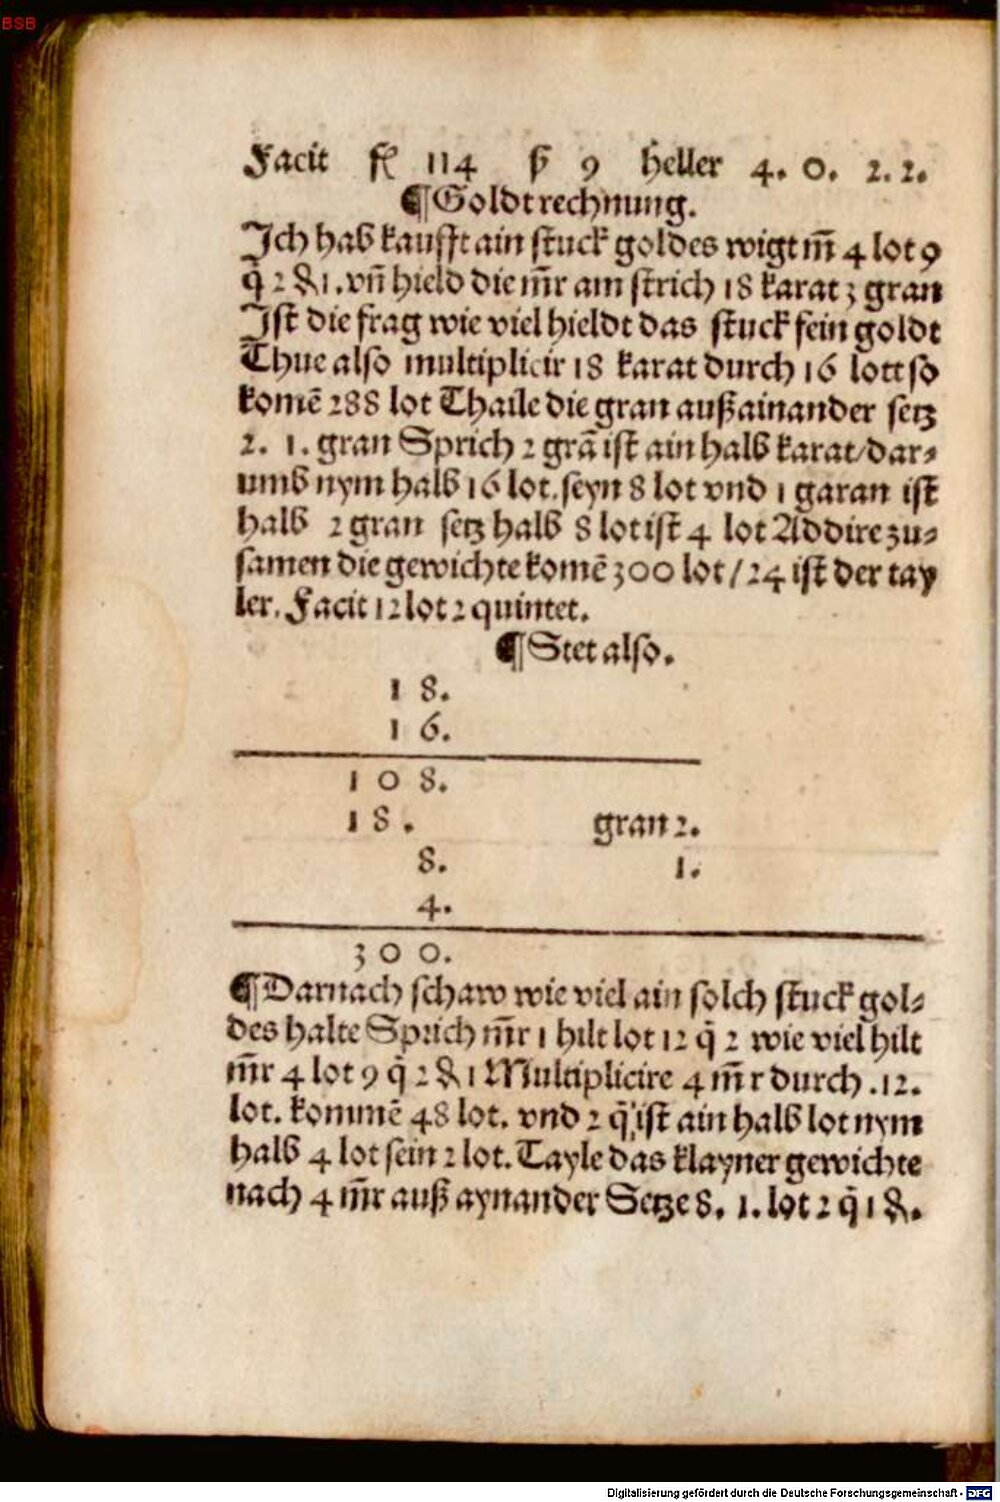 BSB
Facit fl 114 ß 9 heller 4. 0. 2. 2.
¶Goldtrechnung.
Jch hab kaufft ain stuck goldes wigt m̄ 4 lot 9
q̄ 2 ₰ 1. vn̄ hield die m̄r am strich 18 karat 3 gran
Jst die frag wie viel hieldt das stuck fein goldt
Thue also multiplicir 18 karat durch 16 lott so
komē 288 lot Thaile die gran außainander setz
2. 1. gran Sprich 2 grā ist ain halb karat/dar⸗
umb nym halb 16 lot. seyn 8 lot vnd 1 garan ist
halb 2 gran setz halb 8 lot ist 4 lot Addire zu⸗
samen die gewichte komē 300 lot / 24 ist der tay
ler. Facit 12 lot 2 quintet.
¶Stet also.
1 8.
1 6.
1 0 8.
1 8 . gran 2.
8. 1.
4.
3 0 0.
¶Darnach schaw wie viel ain solch stuck gol⸗
des halte Sprich m̄r 1 hilt lot 12 q̄ 2 wie viel hilt
m̄r 4 lot 9 q̄ 2 ₰ 1 Multiplicire 4 m̄r durch .12.
lot. kommē 48 lot. vnd 2 q̄ ist ain halb lot nym
halb 4 lot sein 2 lot. Tayle das klayner gewichte
nach 4 m̄r auß aynander Setze 8. 1. lot 2 q̄ 1 ₰.
Digitalisierung gefördert durch die Deutsche Forschungsgemeinschaft - DFG